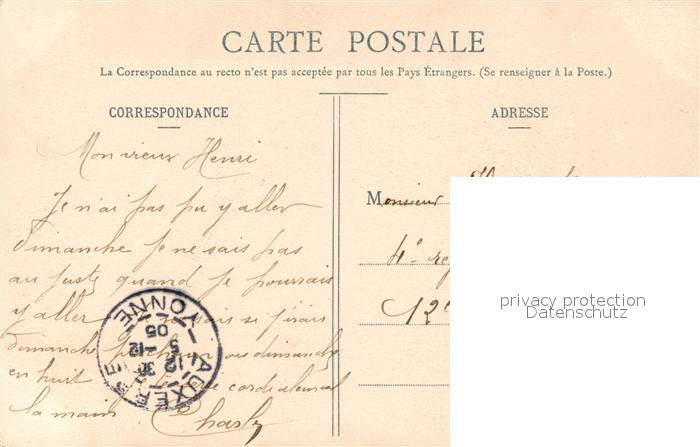 CARTE POSTALE
La Correspondance au recto n'est pas acceptée par tous les Pays Étrangers. (Se renseigner à la Poste.)
CORRESPONDANCE
Mon vieux Henri
Je n'ai pas pu y aller
dimanche je ne sais pas
au juste quand je pourrais
y aller je ne sais si j'irais
dimanche prochain ou dimanche
en huit Je te serre cordialement
la main Charly
AUXERRE
YONNE
12 30
5 -12
05
ADRESSE
Monsieur
4e
12
privacy protection
Datenschutz